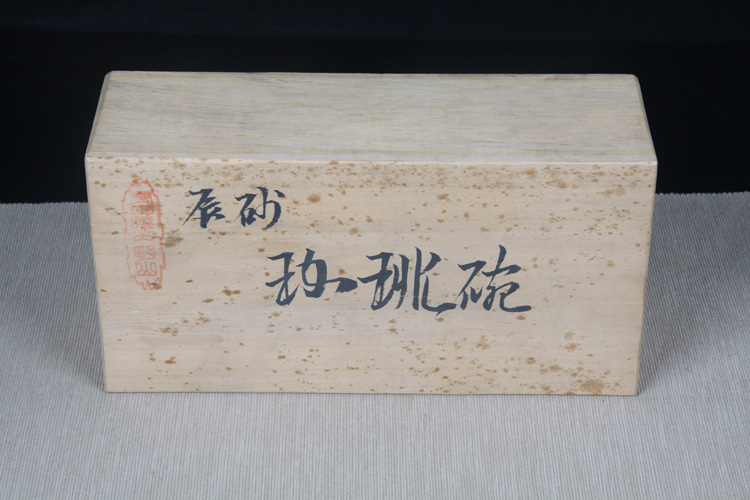 辰砂
珈琲碗